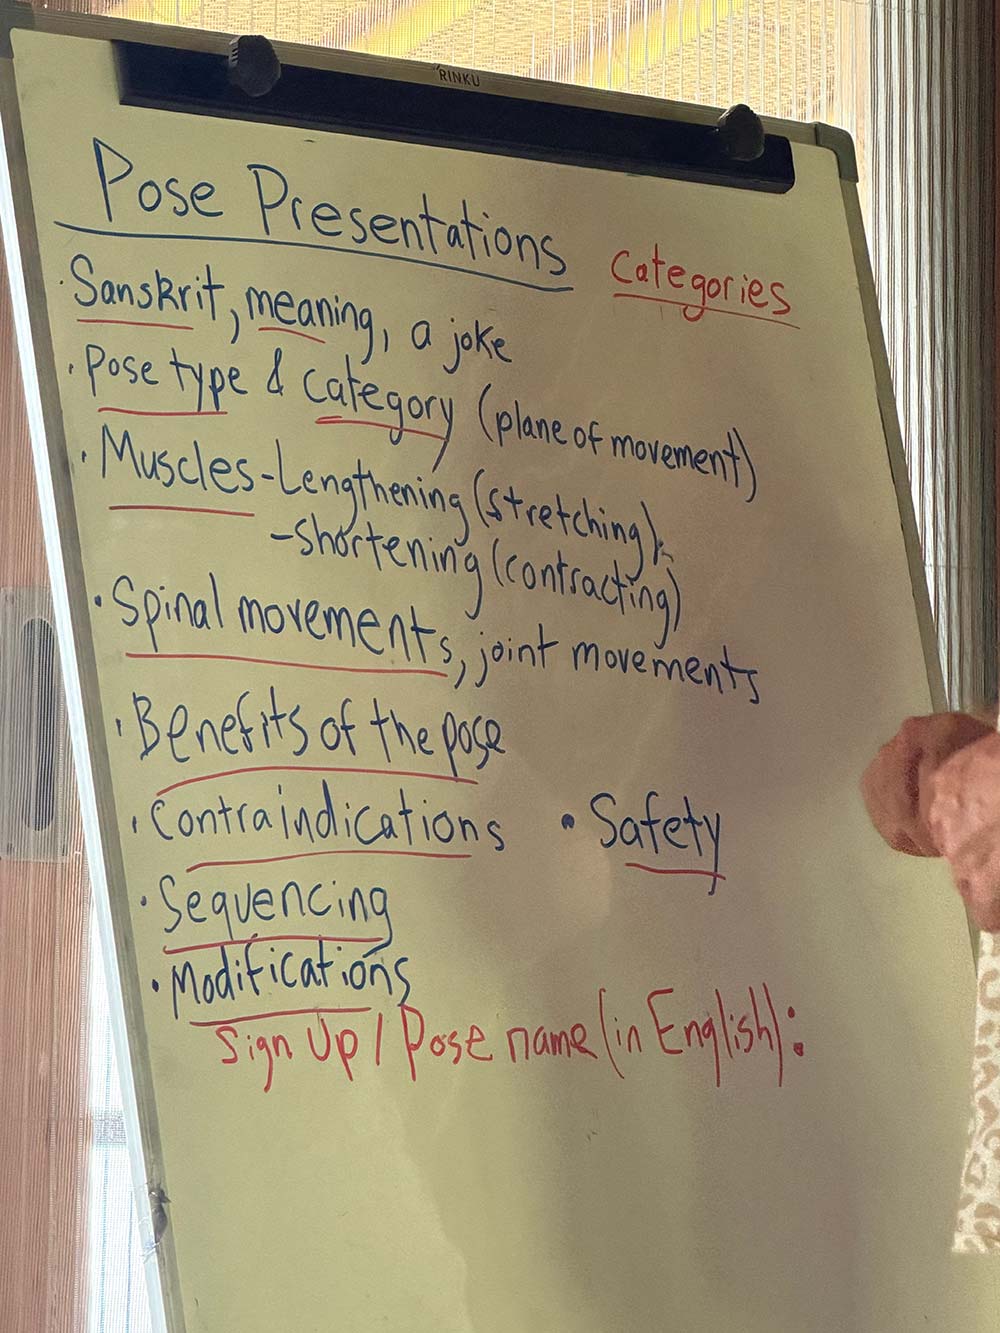 RINKU
Pose Presentations
Categories
· Sanskrit, meaning, a joke
· Pose type & category (plane of movement)
· Muscles - Lengthening (stretching),
- shortening (contracting)
· Spinal movements, joint movements
· Benefits of the pose
· Contraindications • Safety
· Sequencing
· Modifications
Sign Up / Pose name (in English):